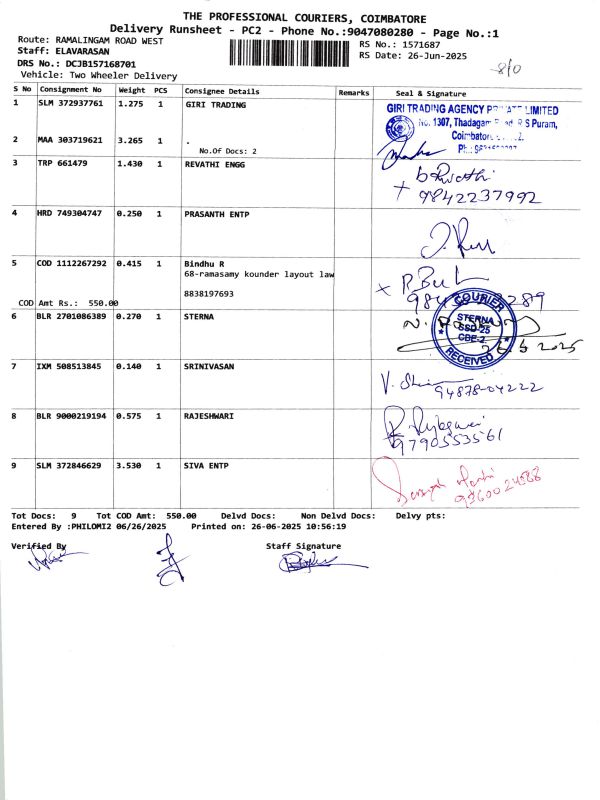 THE PROFESSIONAL COURIERS, COIMBATORE
Delivery Runsheet - PC2 - Phone No.:9047080280 - Page No.:1
Route: RAMALINGAM ROAD WEST
RS No.: 1571687
Staff: ELAVARASAN
RS Date: 26-Jun-2025
DRS No.: DCJB157168701
Vehicle: Two Wheeler Delivery
S No Consignment No Weight PCS Consignee Details Remarks Seal & Signature
1 SLM 372937761 1.275 1 GIRI TRADING
GIRI TRADING AGENCY PRIVATE LIMITED
No. 1307, Thadagam Road, R S Puram,
Coimbatore
2 MAA 303719621 3.265 1 .
No.Of Docs: 2
3 TRP 661479 1.430 1 REVATHI ENGG
9842237992
4 HRD 749304747 0.250 1 PRASANTH ENTP
5 COD 1112267292 0.415 1 Bindhu R
68-ramasamy kounder layout law
8838197693
COD Amt Rs.: 550.00
6 BLR 2701086389 0.270 1 STERNA
COURIER
STERNA
SSD-25
CBE-2
RECEIVED
7 IXM 508513845 0.140 1 SRINIVASAN
94878-04222
8 BLR 9000219194 0.575 1 RAJESHWARI
9790553561
9 SLM 372846629 3.530 1 SIVA ENTP
Tot Docs: 9 Tot COD Amt: 550.00 Delvd Docs: Non Delvd Docs: Delvy pts:
Entered By :PHILOMI2 06/26/2025 Printed on: 26-06-2025 10:56:19
Verified By Staff Signature